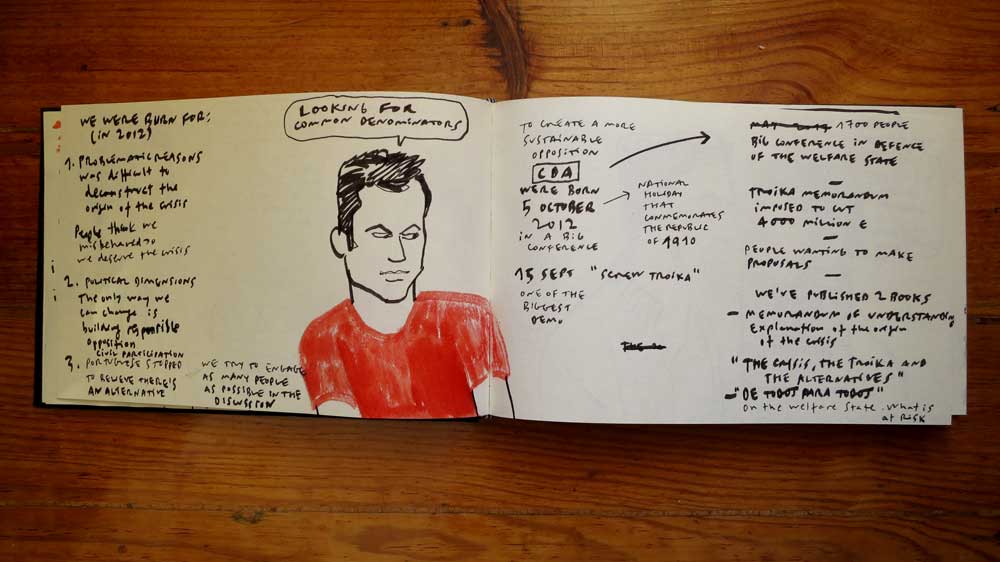 WE WERE BURN FOR:
(IN 2012)
1. PROBLEMATIC REASONS
was difficult to
deconstruct the
origin of the crisis
People think we
misbehaved so
we deserve the crisis
2. POLITICAL DIMENSIONS
The only way we
can change is
building responsible
opposition
CIVIL PARTICIPATION
3. PORTUGUESE STOPPED
TO BELIEVE THERE'S
AN ALTERNATIVE
WE TRY TO ENGAGE
AS MANY PEOPLE
AS POSSIBLE IN THE
DISCUSSION
LOOKING FOR
COMMON DENOMINATORS
TO CREATE A MORE
SUSTAINABLE
OPPOSITION
CDA
WERE BORN
5 OCTOBER
2012
IN A BIG
CONFERENCE
NATIONAL
HOLIDAY
THAT
CONMEMORATES
THE REPUBLIC
OF 1910
15 SEPT "SCREW TROIKA"
ONE OF THE
BIGGEST
DEMO
1700 PEOPLE
BIG CONFERENCE IN DEFENCE
OF THE WELFARE STATE
TROIKA MEMORANDUM
IMPOSED TO CUT
4000 MILLION E
PEOPLE WANTING TO MAKE
PROPOSALS
WE'VE PUBLISHED 2 BOOKS
- MEMORANDUM OF UNDERSTANDING
Explanation of the origin
of the crisis
"THE CRISIS, THE TROIKA AND
THE ALTERNATIVES"
- "DE TODOS PARA TODOS"
On the welfare state. What is
at RISK